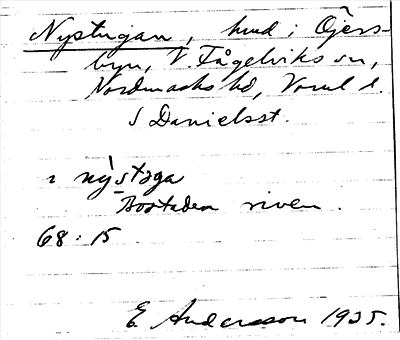 Nystugan, hmd i Öjers-
byn, V. Fågelviks sn,
Nordmarks hd, Vrml l.
S Danielsst.
nỳstɔga
Bostaden riven.
68:15
E. Andersson 1935.